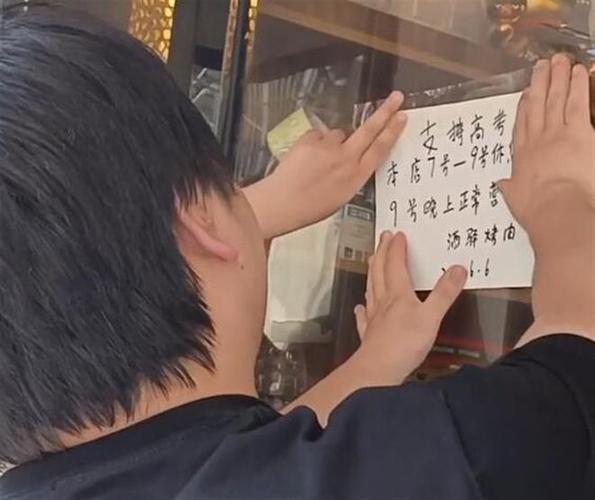 支持高考
本店7号—9号休
9号晚上正常营
洒驿烤肉
6.6